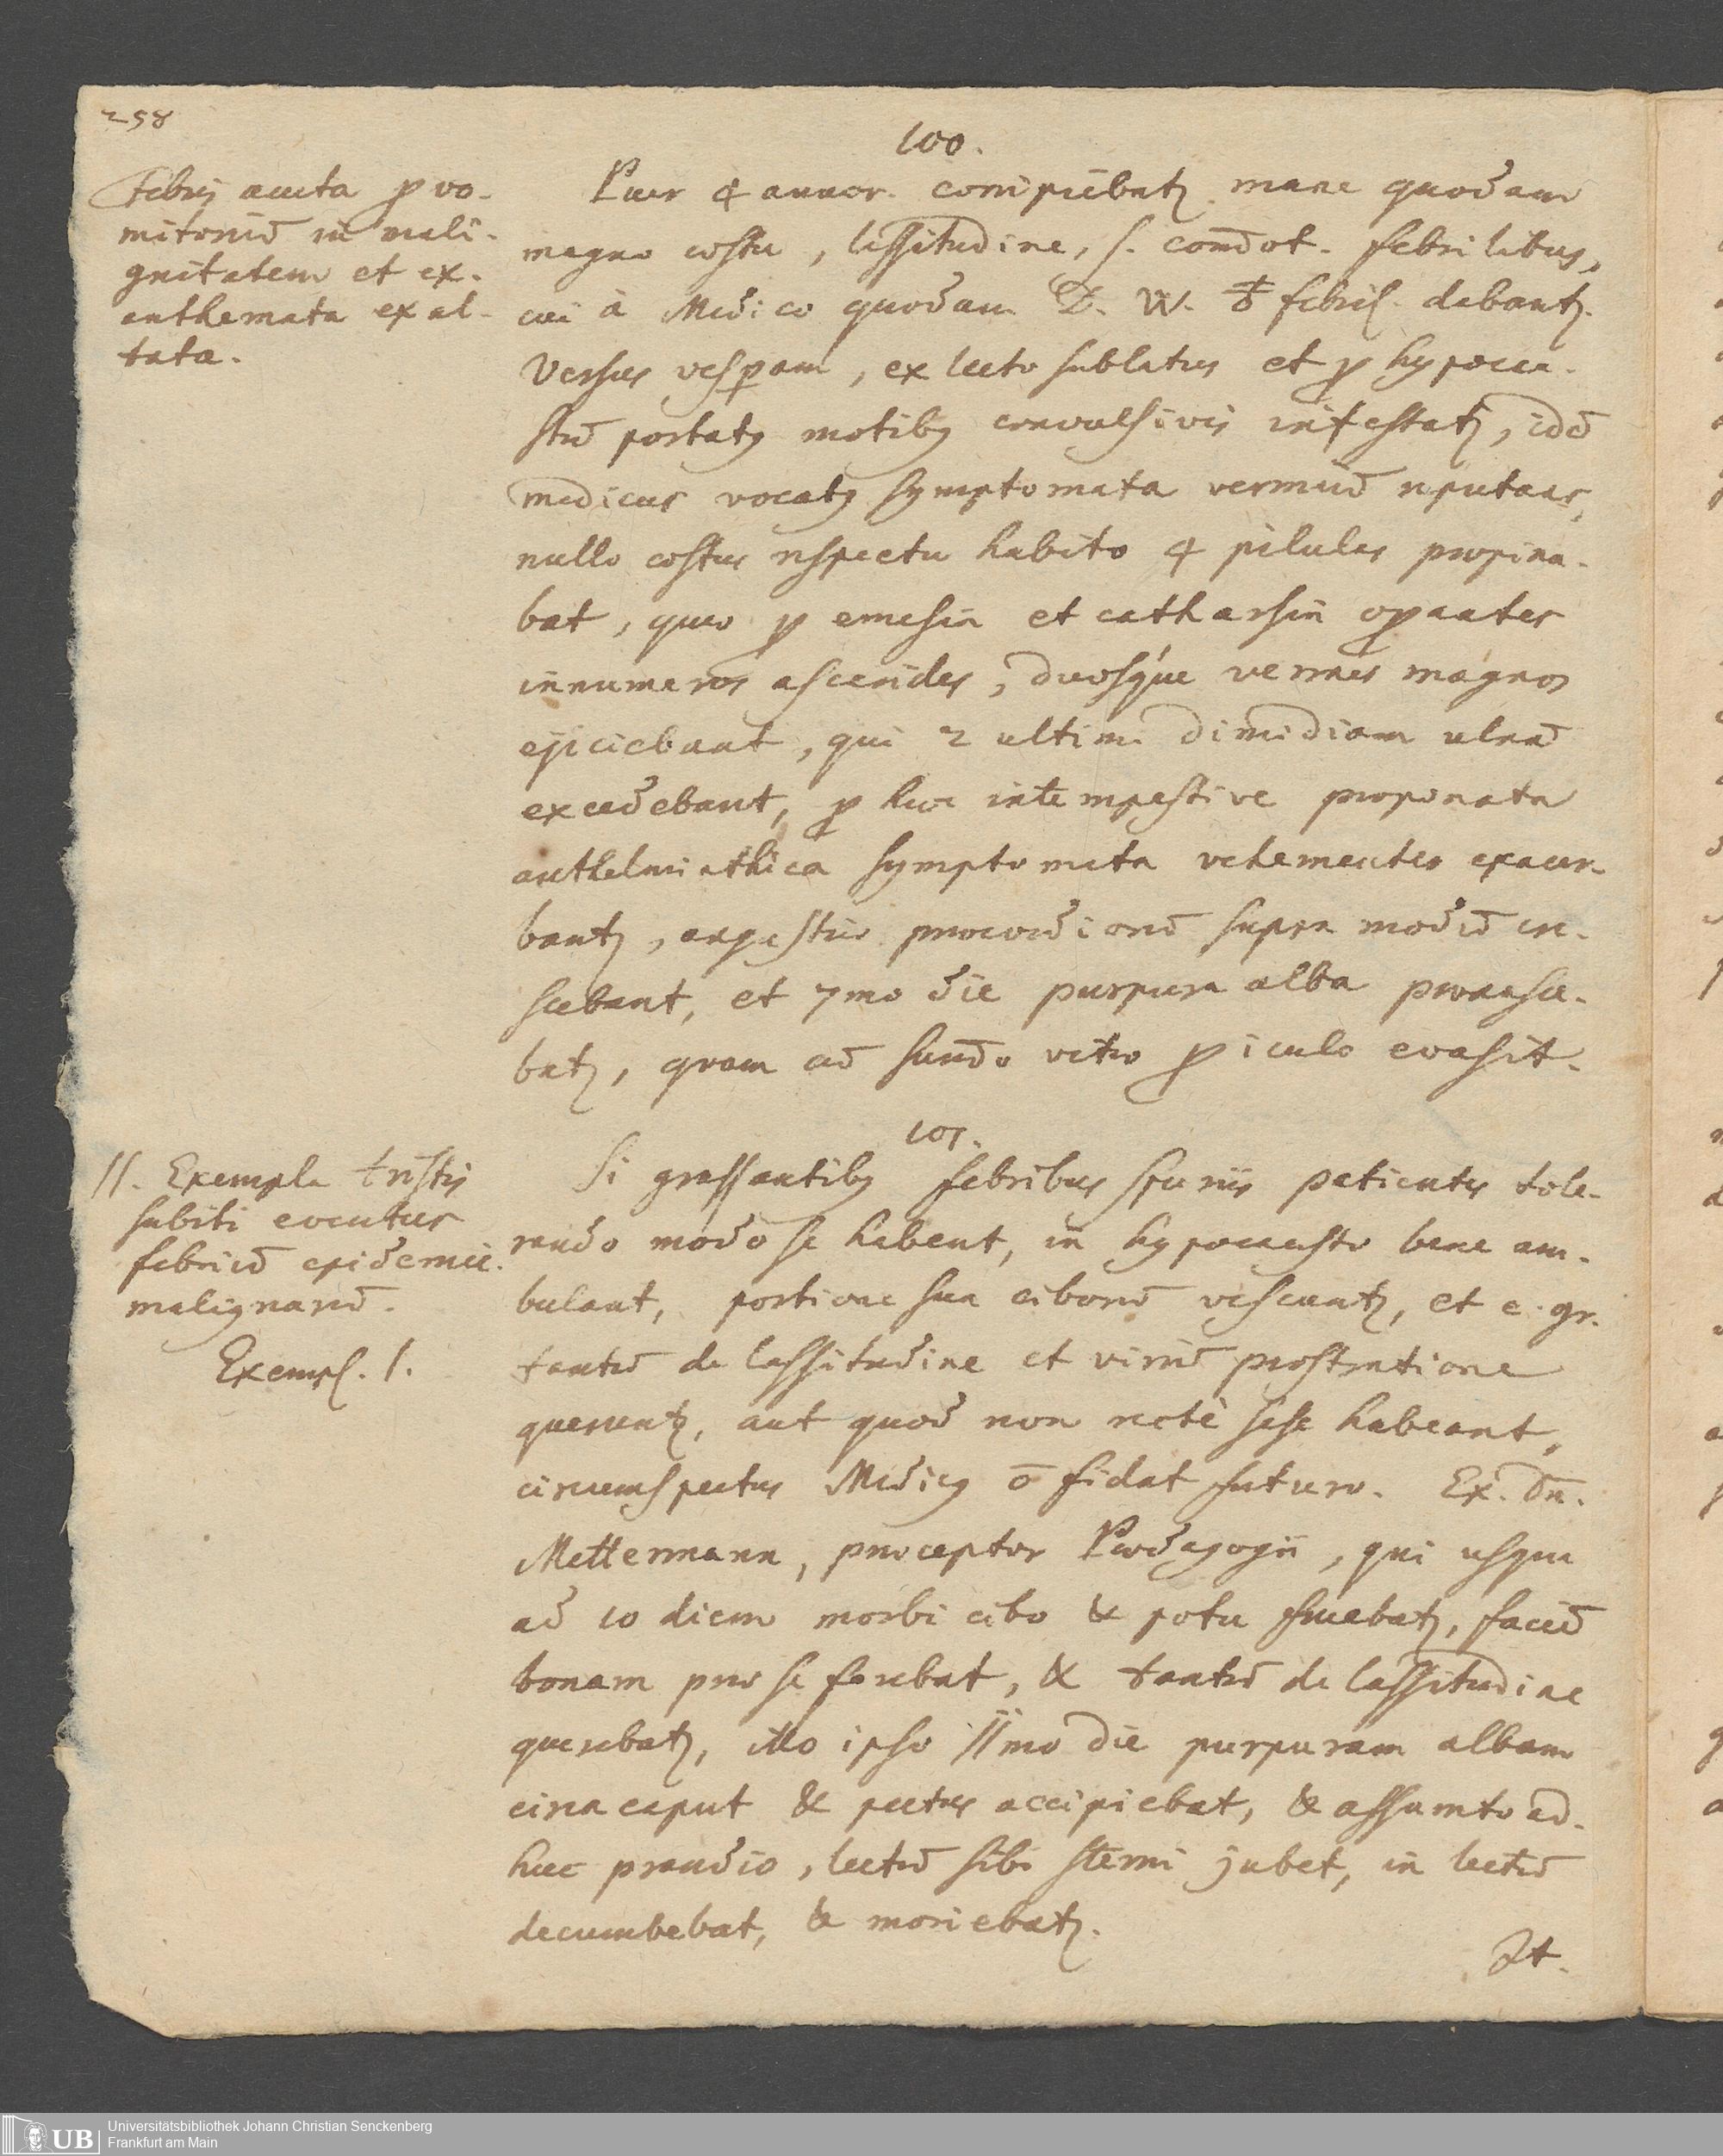 258
100.
Febris acuta p vo-
mitoriū in mali-
gnitatem et ex-
anthemata exal-
tata.
Puer 4 annor. corripiebatr mane quodam
magno æstu, lassitudine, s. com̄ot. febrilibus,
cui à Medico quodam D. W. febril. dabantr.
Versus vesperam, ex lecto sublatus et p hypocau-
stū portatq motibq convulsivis infestatr, idē
medicus vocatq symptomata vermiū reputans,
nullo æstus respectu habito 4 pilulas propina-
bat, quæ p emesin et catharsin operantes
innumeros ascarides, duosq́ue vermes magnos
ejiciebant, qui 2 ultimi dimidiam ulnā
excedebant, p hæc intempestive propinata
anthelminthica symptomata vehementer exacer-
bantr, angustiæ præcordiorū supra modū cre-
scebant, et 7mo die purpura alba prorumpe-
batr, quam cū summo vitæ periculo evasit.
101.
11. Exempla tristis
subiti eventus
febriū epidemic.
malignarū.
Exempl. 1.
Si grassantibq febribus spuriis patientes tole-
rando modo se habent, in hypocausto bene am-
bulant, portione sua ciborū vescuntr, et e. gr.
tantū de lassitudine et viriū prostratione
queruntr, aut quod non rectè sese habeant,
circumspectus Medicq ō fidat futuro. Ex. Dn.
Mettermann, præceptor Pædagogii, qui usque
ad 10 diem morbi cibo & potu fruebatr, faciē
bonam præ se ferebat, & tantū de lassitudine
querebatr, illo ipso 11mo die purpuram albam
circa caput & pectus accipiebat, & assumto ad-
huc prandio, lectū sibi sterni jubet, in lectū
decumbebat, & moriebatr.
It.
Universitätsbibliothek Johann Christian Senckenberg
Frankfurt am Main
UB